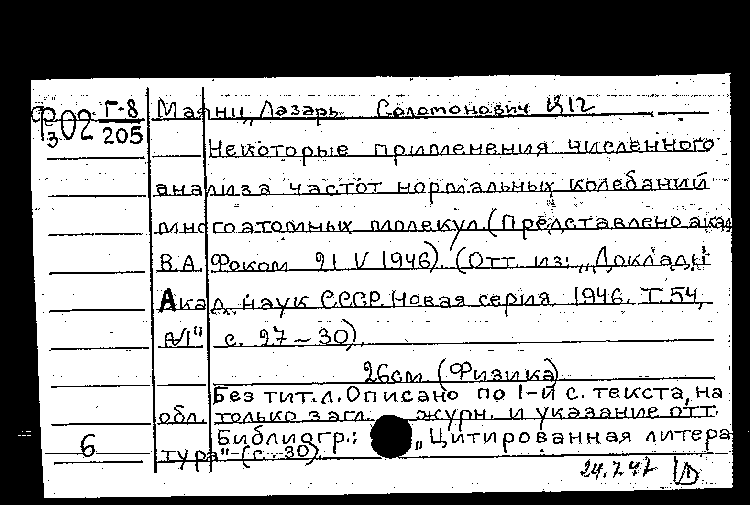 Фз02 Г-8/205
Маянц, Лазарь Соломонович Ц12
Некоторые применения численного
анализа частот нормальных колебаний
многоатомных молекул. (Представлено акад
В.А. Фоком 21 V 1946). (Отт. из: „Доклады
Акад. наук СССР. Новая серия, 1946, Т. 54,
№1" с. 27-30).
26см. (Физика)
Без тит.л. Описано по 1-й с. текста, на
обл. только загл. журн. и указание отт.
6 Библиогр.: „Цитированная литера
тура" (с. 30)
24.7.47